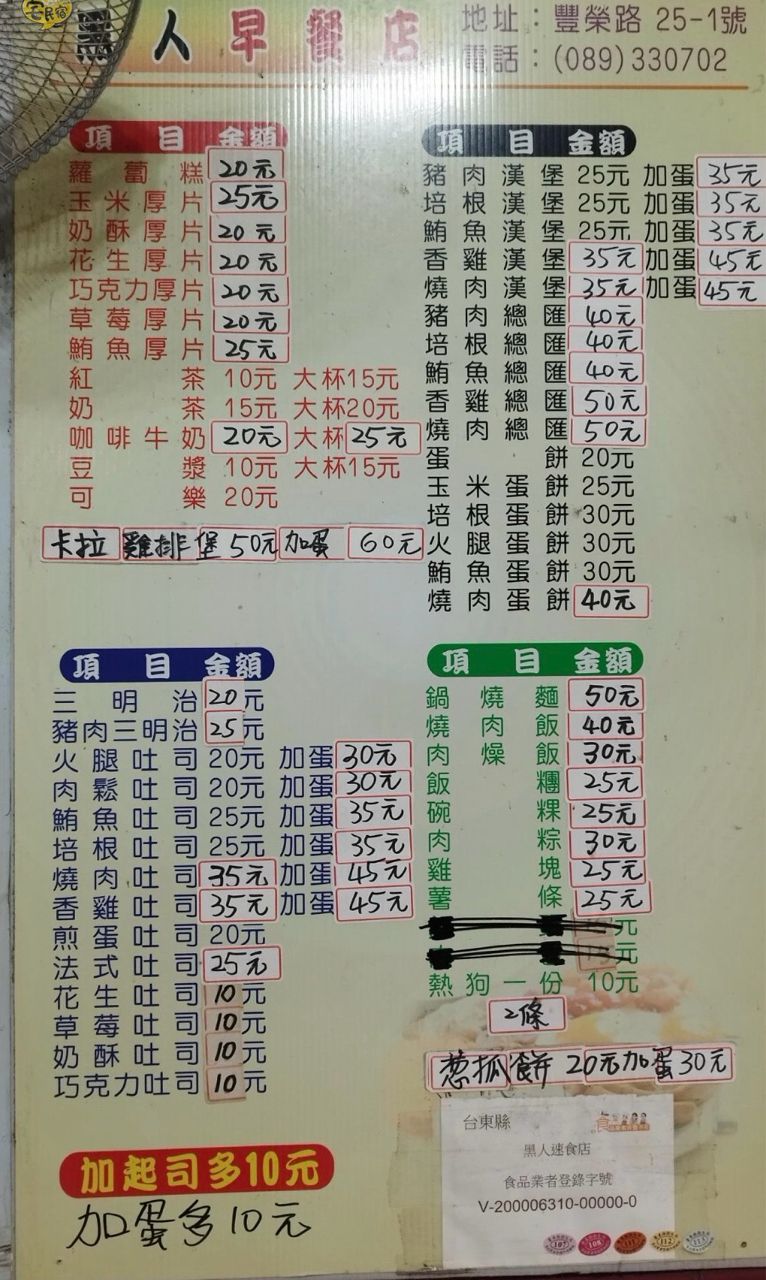 宅民宿
黑人早餐店
地址：豐榮路 25-1號
電話：(089)330702
項 目 金額
蘿蔔糕 20元
玉米厚片 25元
奶酥厚片 20元
花生厚片 20元
巧克力厚片 20元
草莓厚片 20元
鮪魚厚片 25元
紅茶 10元 大杯15元
奶茶 15元 大杯20元
咖啡牛奶 20元 大杯25元
豆漿 10元 大杯15元
可樂 20元
卡拉雞排堡50元加蛋 60元
項 目 金額
豬肉漢堡 25元 加蛋 35元
培根漢堡 25元 加蛋 35元
鮪魚漢堡 25元 加蛋 35元
香雞漢堡 35元 加蛋 45元
燒肉漢堡 35元 加蛋 45元
豬肉總匯 40元
培根總匯 40元
鮪魚總匯 40元
香雞總匯 50元
燒肉總匯 50元
蛋餅 20元
玉米蛋餅 25元
培根蛋餅 30元
火腿蛋餅 30元
鮪魚蛋餅 30元
燒肉蛋餅 40元
項 目 金額
三明治 20元
豬肉三明治 25元
火腿吐司 20元 加蛋 30元
肉鬆吐司 20元 加蛋 30元
鮪魚吐司 25元 加蛋 35元
培根吐司 25元 加蛋 35元
燒肉吐司 35元 加蛋 45元
香雞吐司 35元 加蛋 45元
煎蛋吐司 20元
法式吐司 25元
花生吐司 10元
草莓吐司 10元
奶酥吐司 10元
巧克力吐司 10元
加起司多10元
加蛋多10元
項 目 金額
鍋燒麵 50元
燒肉飯 40元
肉燥飯 30元
飯糰 25元
碗粿 25元
肉粽 30元
雞塊 25元
薯條 25元
元
元
熱狗一份 10元
2條
葱抓餅 20元加蛋30元
台東縣
黑人速食店
食品業者登錄字號
V-200006310-00000-0